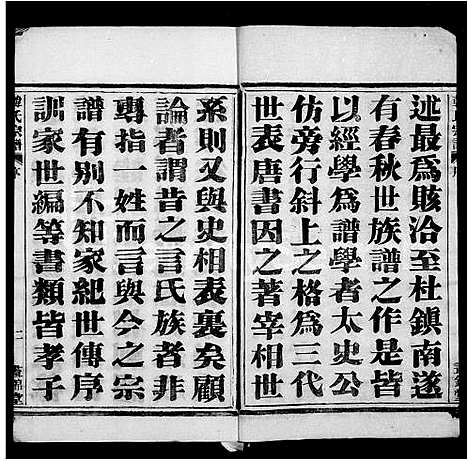 述最爲賅洽至杜鎮南遂
有春秋世族譜之作是皆
以經學爲譜學者太史公
仿旁行斜上之格爲三代
世表唐書因之著宰相世
系則又與史相表裏矣顧
論者謂昔之言氏族者非
專指一姓而言與今之宗
譜有別不知家紀世傳序
訓家世編等書類皆孝子
氏宗譜
序
二
錦堂